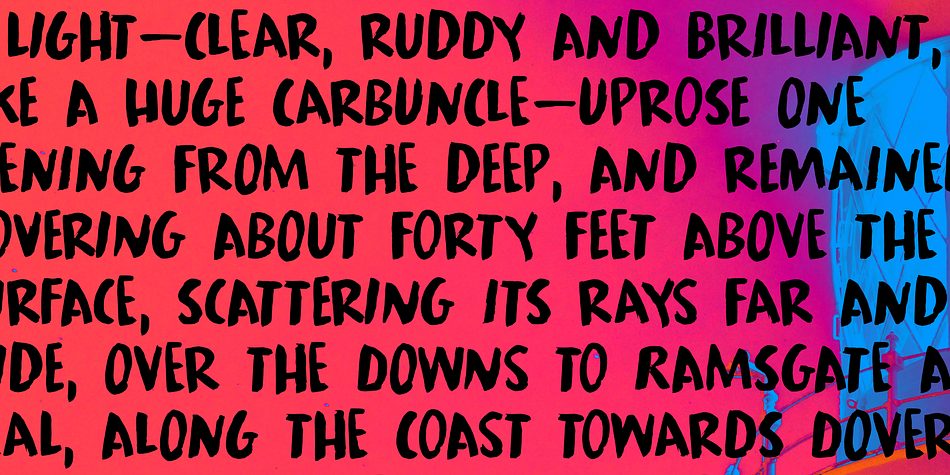 LIGHT—CLEAR, RUDDY AND BRILLIANT,
KE A HUGE CARBUNCLE—UPROSE ONE
ENING FROM THE DEEP, AND REMAINE
OVERING ABOUT FORTY FEET ABOVE THE
URFACE, SCATTERING ITS RAYS FAR AND
IDE, OVER THE DOWNS TO RAMSGATE A
AL, ALONG THE COAST TOWARDS DOVER